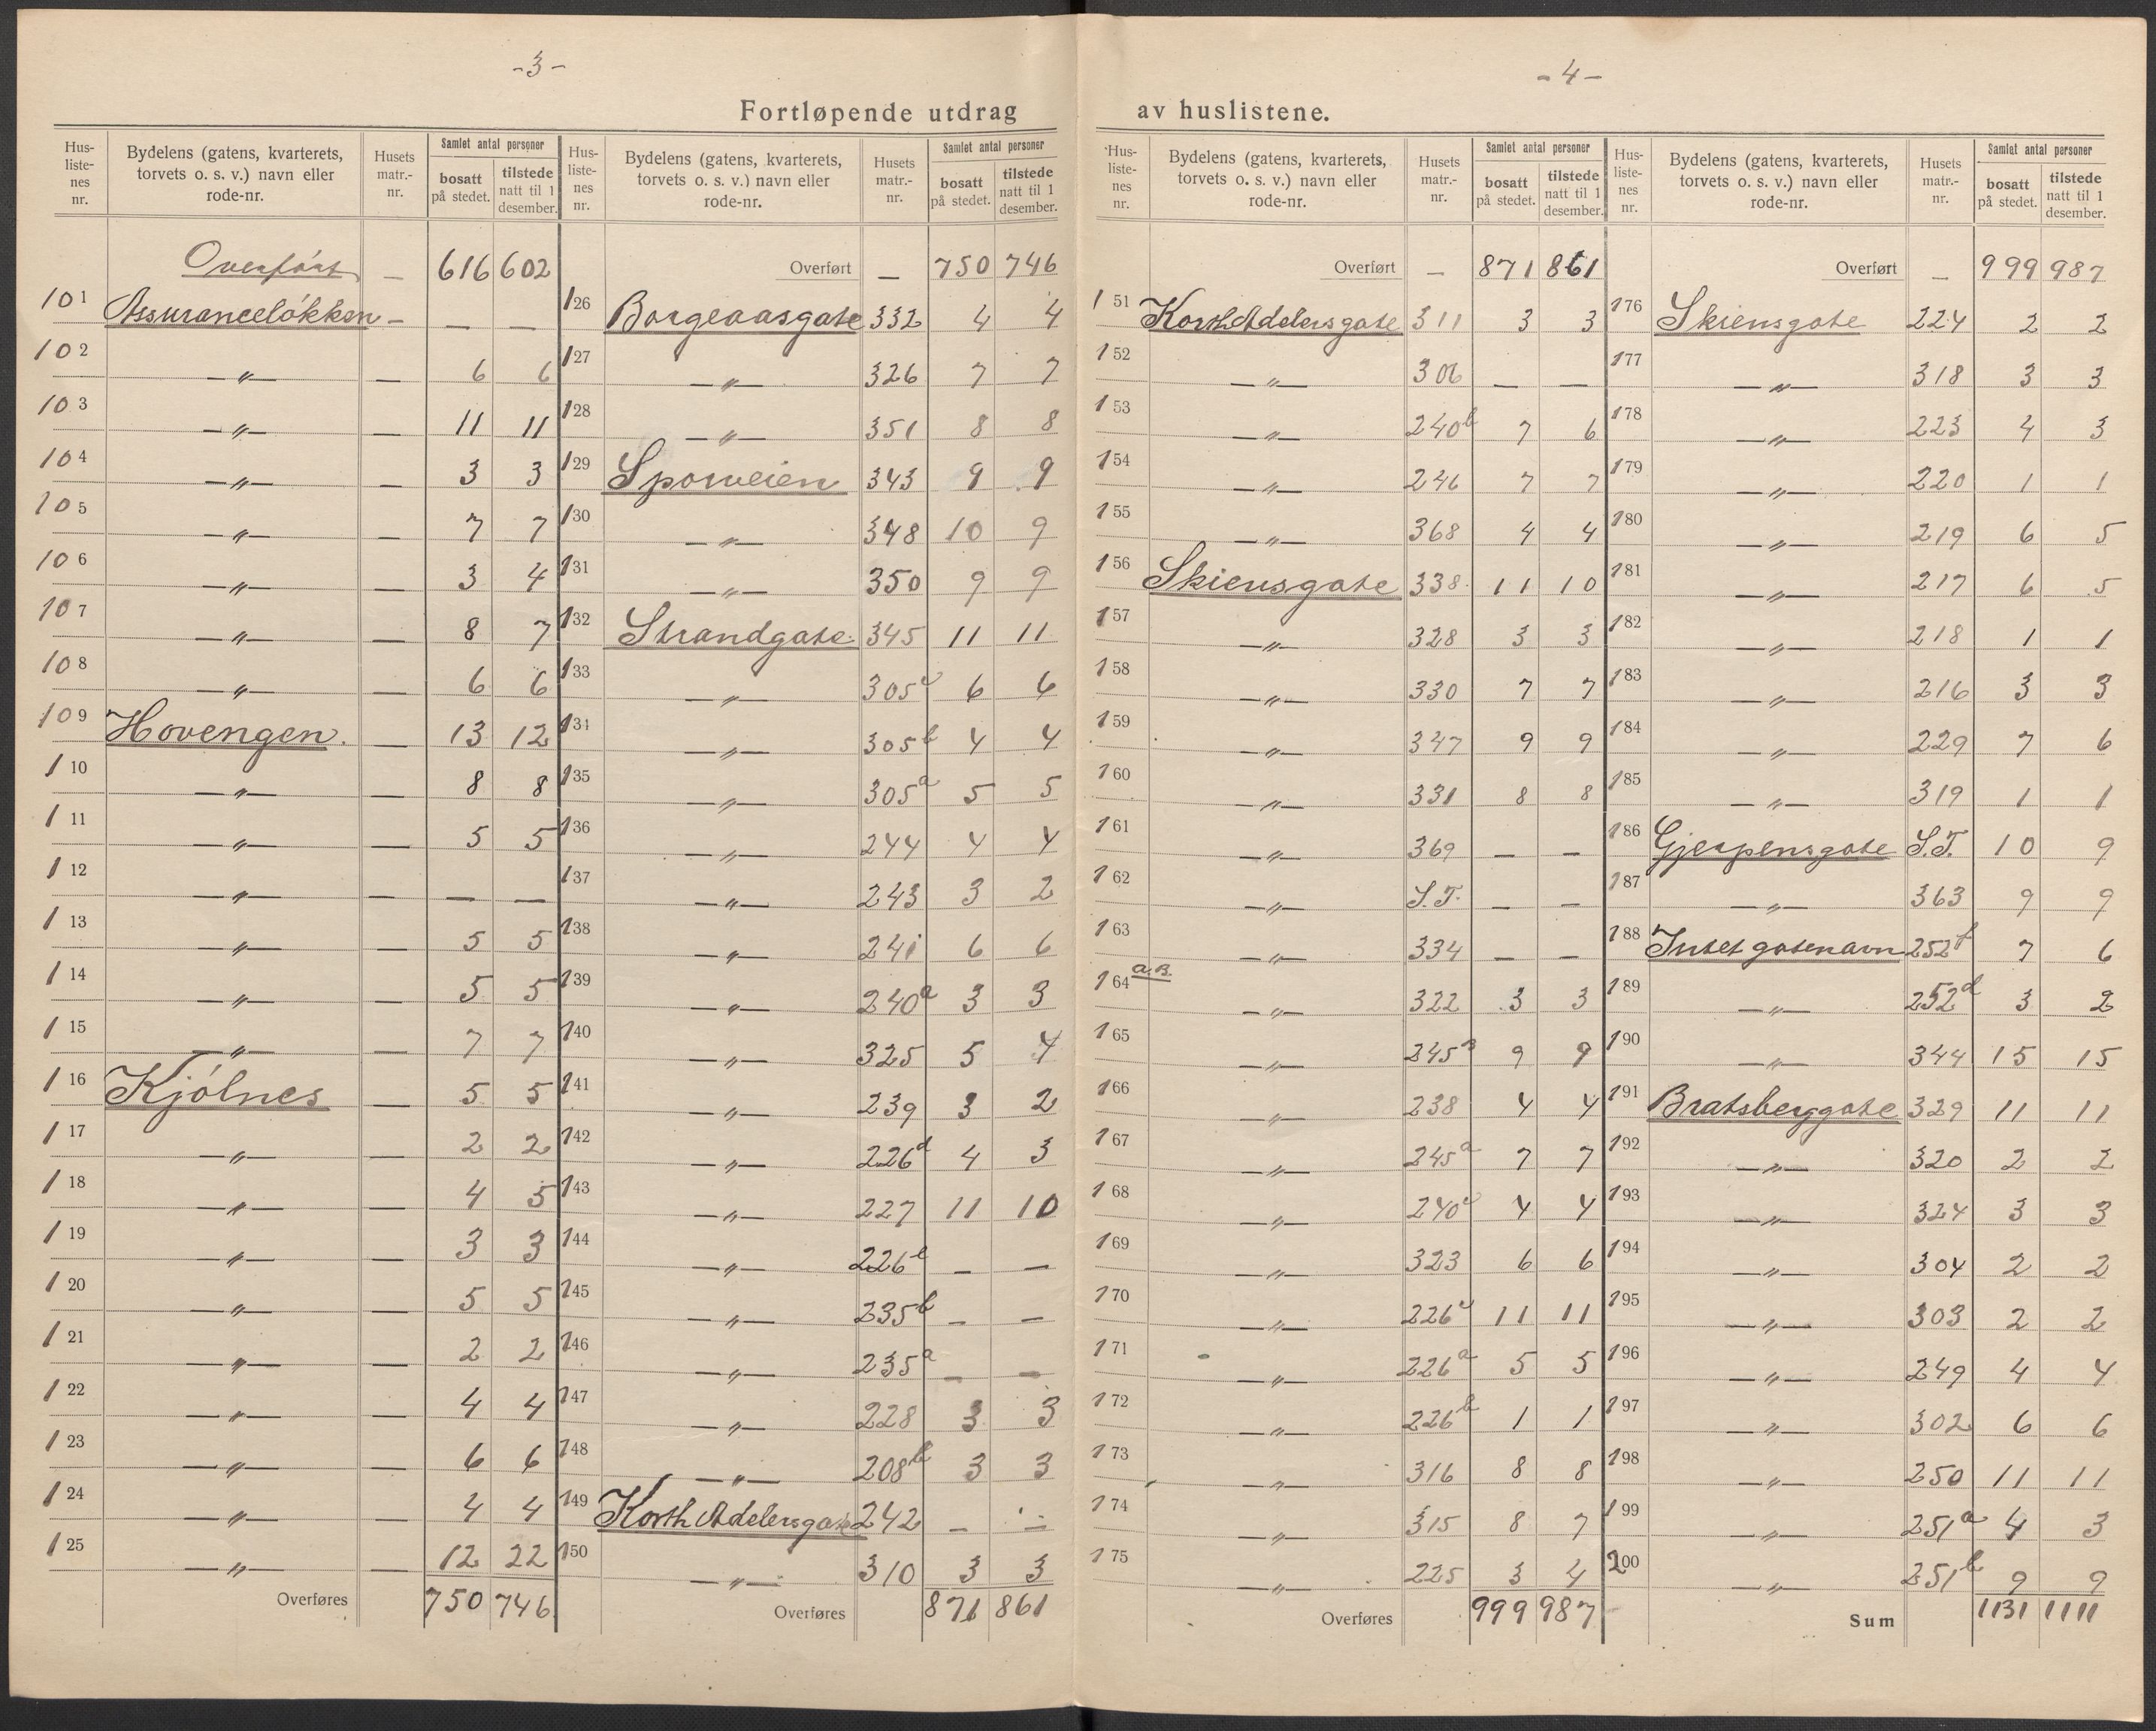 -3-
Fortløpende utdrag
Hus-liste-nes nr. | Bydelens (gatens, kvarterets, torvets o. s. v.) navn eller rode-nr. | Husets matr.-nr. | Samlet antal personer bosatt på stedet. | tilstede natt til 1 desember.
Overført — 616 602
101 Assuranceløkken — — —
102 —"— — 6 6
103 —"— — 11 11
104 —"— — 3 3
105 —"— — 7 7
106 —"— — 3 4
107 —"— — 8 7
108 —"— — 6 6
109 Hovengen. — 13 12
110 —"— — 8 8
111 —"— — 5 5
112 —"— — — —
113 —"— — 5 5
114 —"— — 5 5
115 —"— — 7 7
116 Kjølnes — 5 5
117 —"— — 2 2
118 —"— — 4 5
119 —"— — 3 3
120 —"— — 5 5
121 —"— — 2 2
122 —"— — 4 4
123 —"— — 6 6
124 —"— — 4 4
125 —"— — 12 22
Overføres 750 746
Hus-liste-nes nr. | Bydelens (gatens, kvarterets, torvets o. s. v.) navn eller rode-nr. | Husets matr.-nr. | Samlet antal personer bosatt på stedet. | tilstede natt til 1 desember.
Overført — 750 746
126 Borgeaasgate 332 4 4
127 —"— 326 7 7
128 —"— 351 8 8
129 Sporveien 343 9 9
130 —"— 348 10 9
131 —"— 350 9 9
132 Strandgate 345 11 11
133 —"— 305c 6 6
134 —"— 305b 4 4
135 —"— 305a 5 5
136 —"— 244 4 4
137 —"— 243 3 2
138 —"— 241 6 6
139 —"— 240a 3 3
140 —"— 325 5 4
141 —"— 239 3 2
142 —"— 226d 4 3
143 —"— 227 11 10
144 —"— 226e — —
145 —"— 235b — —
146 —"— 235a — —
147 —"— 228 3 3
148 —"— 208b 3 3
149 Korth Adelersgate 242 — —
150 —"— 310 3 3
Overføres 871 861
-4-
av huslistene.
Hus-liste-nes nr. | Bydelens (gatens, kvarterets, torvets o. s. v.) navn eller rode-nr. | Husets matr.-nr. | Samlet antal personer bosatt på stedet. | tilstede natt til 1 desember.
Overført — 871 861
151 Korth Adelersgate 311 3 3
152 —"— 306 — —
153 —"— 240b 7 6
154 —"— 246 7 7
155 —"— 368 4 4
156 Skiensgate 338 11 10
157 —"— 328 3 3
158 —"— 330 7 7
159 —"— 347 9 9
160 —"— 331 8 8
161 —"— 369 — —
162 —"— S.T. — —
163 —"— 334 — —
164 a.B. —"— 322 3 3
165 —"— 245 9 9
166 —"— 238 4 4
167 —"— 245a 7 7
168 —"— 240c 4 4
169 —"— 323 6 6
170 —"— 226c 11 11
171 —"— 226a 5 5
172 —"— 226b 1 1
173 —"— 316 8 8
174 —"— 315 8 7
175 —"— 225 3 4
Overføres 999 987
Hus-liste-nes nr. | Bydelens (gatens, kvarterets, torvets o. s. v.) navn eller rode-nr. | Husets matr.-nr. | Samlet antal personer bosatt på stedet. | tilstede natt til 1 desember.
Overført — 999 987
176 Skiensgate 224 2 2
177 —"— 318 3 3
178 —"— 223 4 3
179 —"— 220 1 1
180 —"— 219 6 5
181 —"— 217 6 5
182 —"— 218 1 1
183 —"— 216 3 3
184 —"— 229 7 6
185 —"— 319 1 1
186 Gjerpensgate S.T. 10 9
187 —"— 363 9 9
188 Intet gatenavn 252f 7 6
189 —"— 252d 3 2
190 —"— 344 15 15
191 Bratsberggate 329 11 11
192 —"— 320 2 2
193 —"— 324 3 3
194 —"— 304 2 2
195 —"— 303 2 2
196 —"— 249 4 4
197 —"— 302 6 6
198 —"— 250 11 11
199 —"— 251a 4 3
200 —"— 251b 9 9
Sum 1131 1111